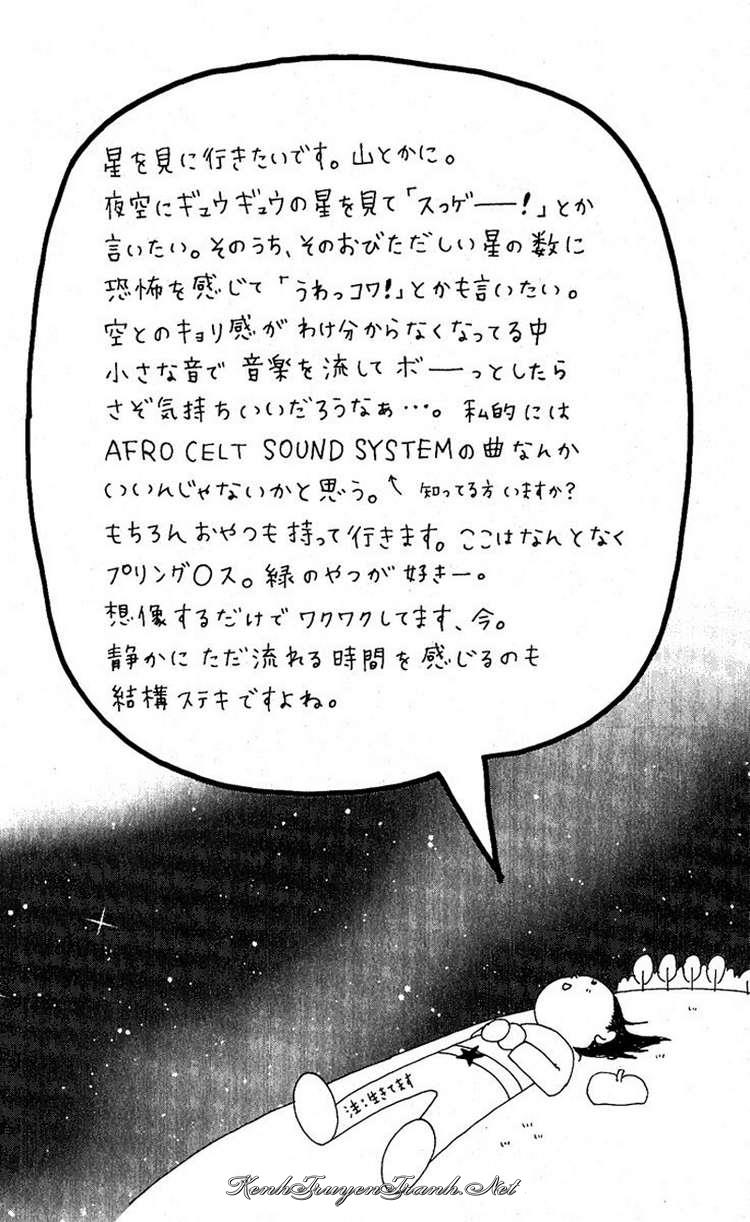 星を見に行きたいです。山とかに。
夜空にギュウギュウの星を見て「スっゲ――!」とか
言いたい。そのうち、そのおびただしい星の数に
恐怖を感じて「うわっコワ!」とかも言いたい。
空とのキョリ感がわけ分からなくなってる中
小さな音で 音楽を流してボ――っとしたら
さぞ気持ちいいだろうなぁ…。私的には
AFRO CELT SOUND SYSTEMの曲なんか
いいんじゃないかと思う。↖知ってる方いますか?
もちろんおやつも持って行きます。ここはなんとなく
プリング〇ス。緑のやつが好きー。
想像するだけでワクワクしてます、今。
静かに ただ流れる時間を感じるのも
結構ステキですよね。
注:生きてます
KenhTruyenTranh.Net